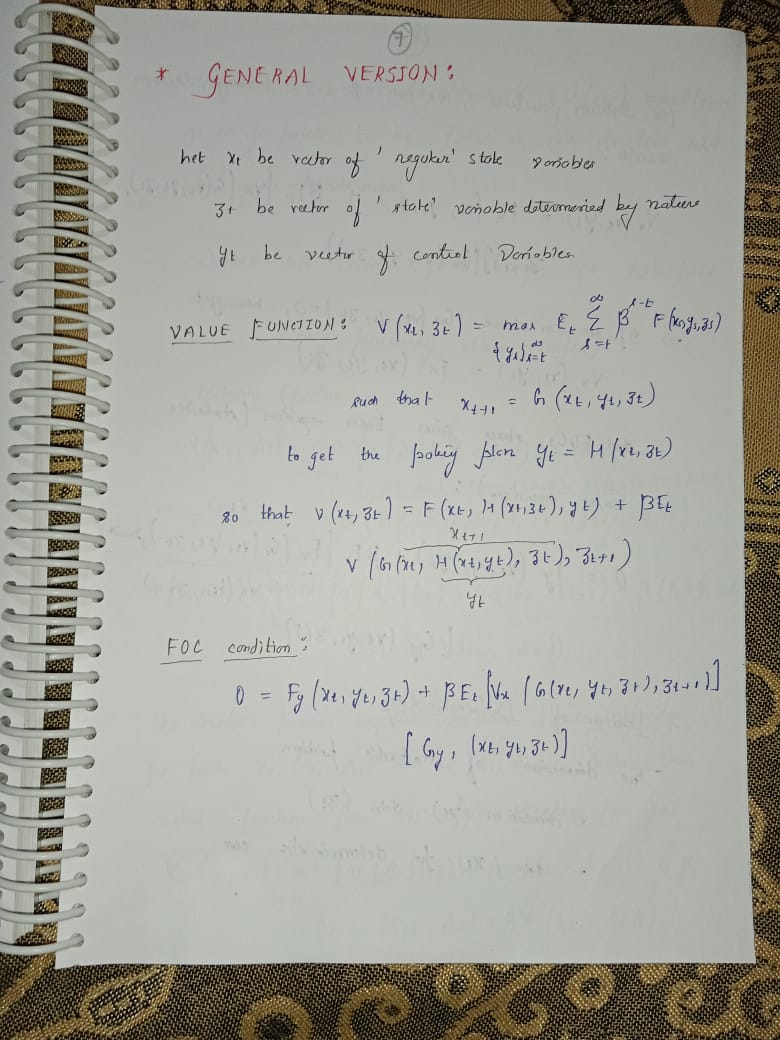 7
* GENERAL VERSION :
Let xt be vector of 'regular' state variables
zt be vector of 'state' variable determined by nature
yt be vector of control variables
VALUE FUNCTION : V(xt, zt) = max Et Σ β^(s-t) F(xs, ys, zs)
{ys}∞s=t ∞ s=t
such that xt+1 = G(xt, yt, zt)
to get the policy plan yt = H(xt, zt)
so that V(xt, zt) = F(xt, H(xt, zt), yt) + βEt
xt+1
V(G(xt, H(xt, yt), zt), zt+1)
yt
FOC condition :
0 = Fy(xt, yt, zt) + βEt[Vx(G(xt, yt, zt), zt+1)]
[Gy, (xt, yt, zt)]